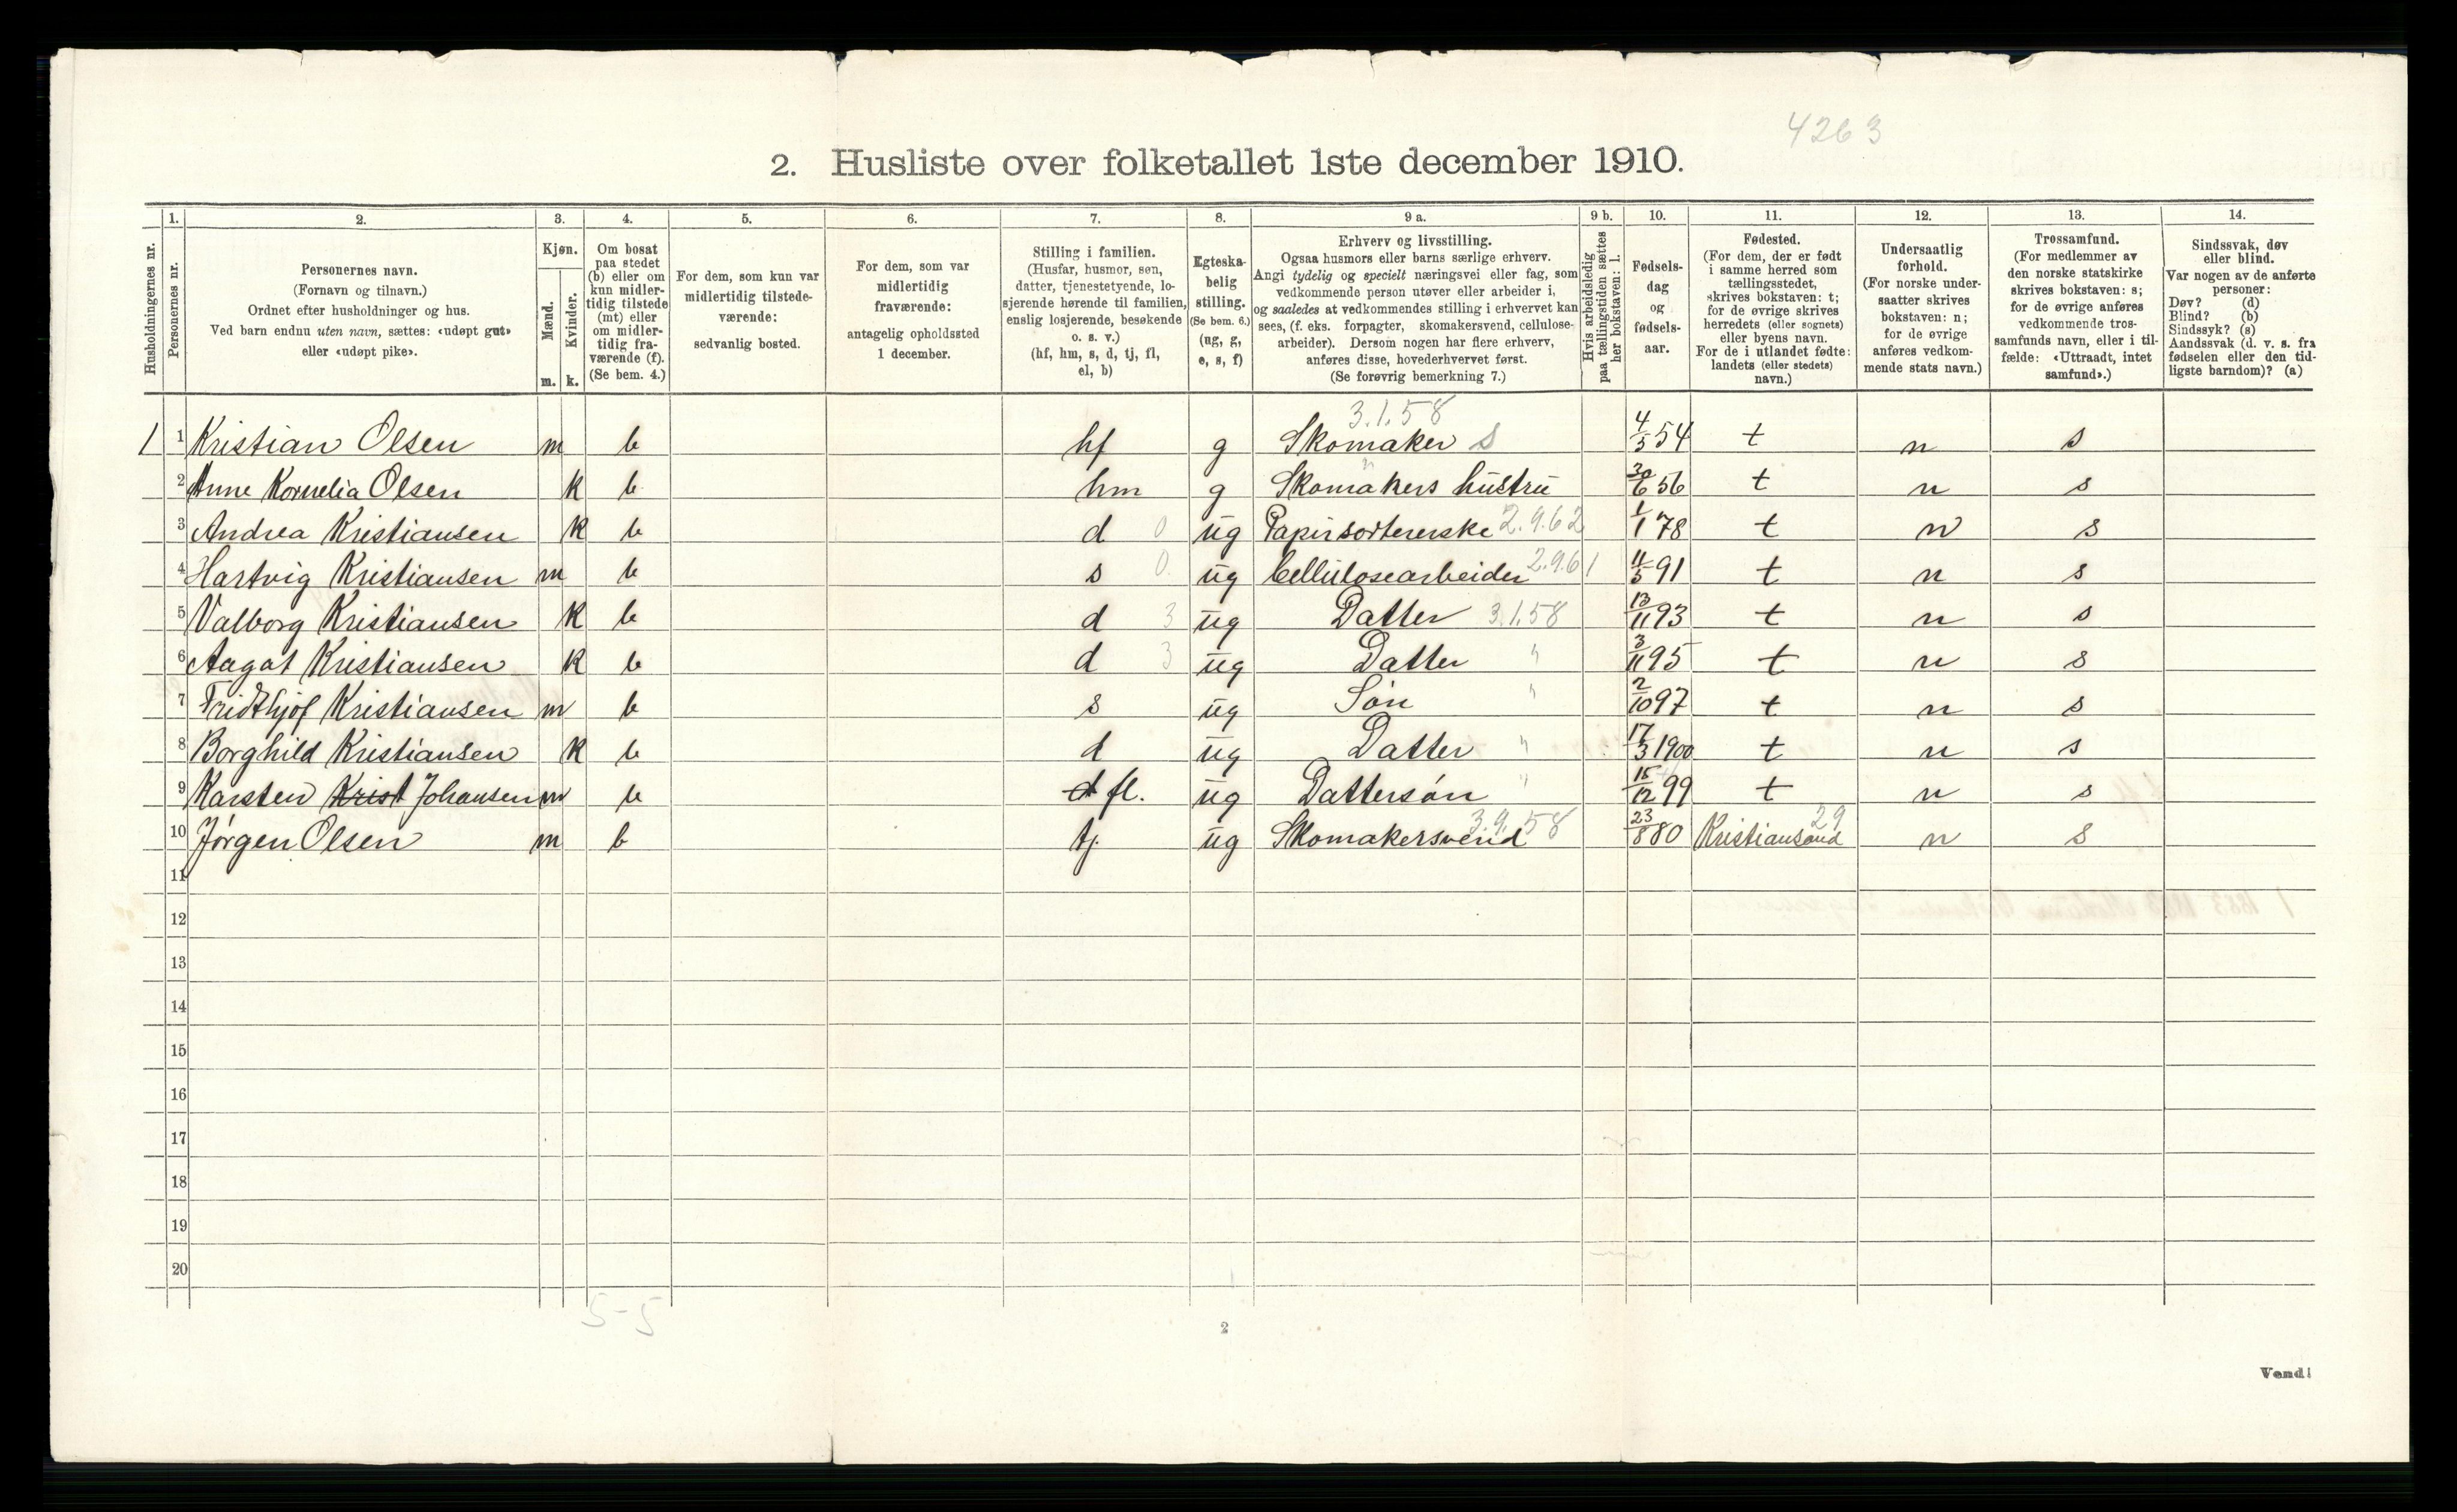 4263
2. Husliste over folketallet 1ste december 1910.
Husholdningernes nr.
1. Personernes nr.
2. Personernes navn. (Fornavn og tilnavn.) Ordnet efter husholdninger og hus. Ved barn endnu uten navn, sættes: «udøpt gut» eller «udøpt pike».
3. Kjøn. Mænd. m. Kvinder. k.
4. Om bosat paa stedet (b) eller om kun midler-tidig tilstede (mt) eller om midler-tidig fra-værende (f). (Se bem. 4.)
5. For dem, som kun var midlertidig tilstede-værende: sedvanlig bosted.
6. For dem, som var midlertidig fraværende: antagelig opholdssted 1 december.
7. Stilling i familien. (Husfar, husmor, søn, datter, tjenestetyende, lo-sjerende hørende til familien, enslig losjerende, besøkende o. s. v.) (hf, hm, s, d, tj, fl, el, b)
8. Egteska-belig stilling. (Se bem. 6.) (ug, g, e, s, f)
9 a. Erhverv og livsstilling. Ogsaa husmors eller barns særlige erhverv. Angi tydelig og specielt næringsvei eller fag, som vedkommende person utøver eller arbeider i, og saaledes at vedkommendes stilling i erhvervet kan sees, (f. eks. forpagter, skomakersvend, cellulose-arbeider). Dersom nogen har flere erhverv, anføres disse, hovederhvervet først. (Se forøvrig bemerkning 7.)
9 b. Hvis arbeidsledig paa tællingstiden sættes her bokstaven: l.
10. Fødsels-dag og fødsels-aar.
11. Fødested. (For dem, der er født i samme herred som tællingsstedet, skrives bokstaven: t; for de øvrige skrives herredets (eller sognets) eller byens navn. For de i utlandet fødte: landets (eller stedets) navn.)
12. Undersaatlig forhold. (For norske under-saatter skrives bokstaven: n; for de øvrige anføres vedkom-mende stats navn.)
13. Trossamfund. (For medlemmer av den norske statskirke skrives bokstaven: s; for de øvrige anføres vedkommende tros-samfunds navn, eller i til-fælde: «Uttraadt, intet samfund».)
14. Sindssvak, døv eller blind. Var nogen av de anførte personer: Døv? (d) Blind? (b) Sindssyk? (s) Aandssvak (d. v. s. fra fødselen eller den tid-ligste barndom)? (a)
3.1.58
1 1 Kristian Olsen m b hf g Skomaker S 4/5 54 t n s
2 Anne Kornelia Olsen k b hm g Skomakers hustru " 30/6 56 t n s
3 Andrea Kristiansen k b d 0 ug Papirsortererske 2.9.62 1/1 78 t n s
4 Hartvig Kristiansen m b s 0 ug Cellulosearbeider 2.9.61 11/5 91 t n s
5 Valborg Kristiansen k b d 3 ug Datter 3.1.58 13/11 93 t n s
6 Aagot Kristiansen k b d 3 ug Datter " 3/11 95 t n s
7 Fridthjof Kristiansen m b s ug Søn " 2/10 97 t n s
8 Borghild Kristiansen k b d ug Datter " 17/3 1900 t n s
9 Karsten Krist Johansen m b d fl. ug Dattersøn " 15/12 99 t n s
10 Jørgen Olsen m b tj. ug Skomakersvend 3.9.58 23/8 80 Kristiansand 29 n s
11
12
13
14
15
16
17
18
19
20
5-5
2
Vend!